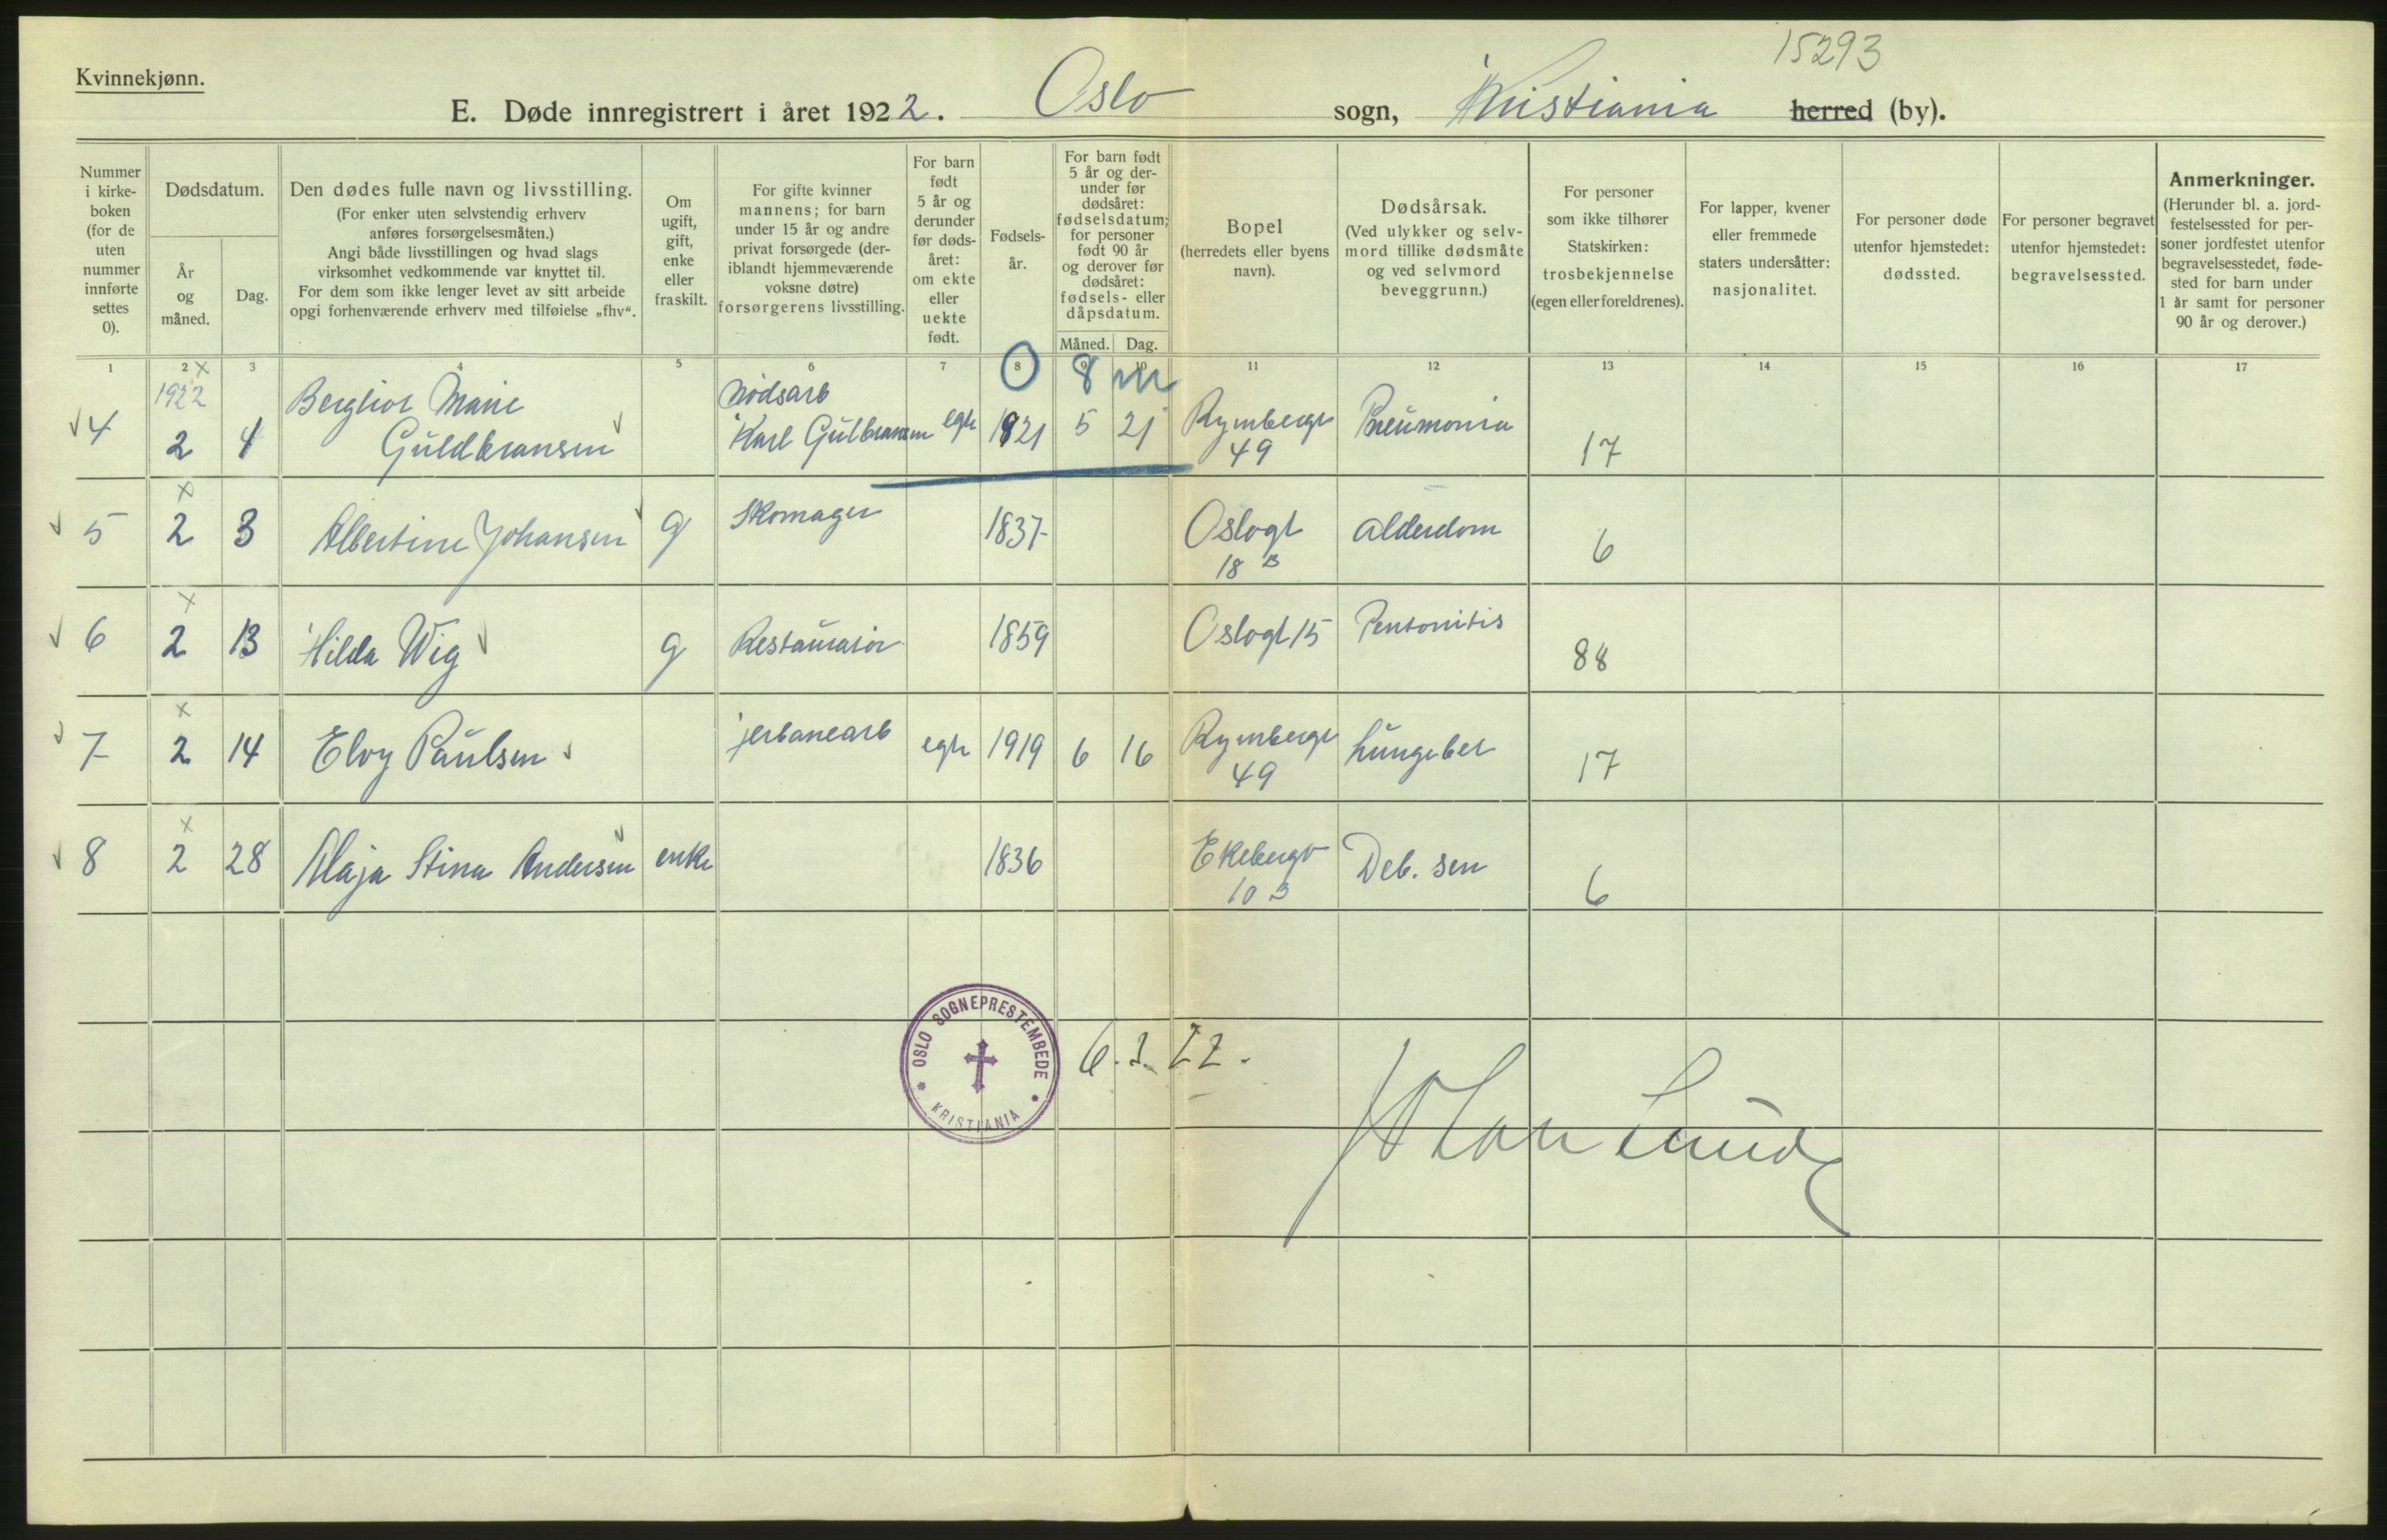 15293
Kvinnekjønn.
E. Døde innregistrert i året 1922. Oslo sogn, Kristiania herred (by).
Nummer
i kirke-
boken
(for de
uten
nummer
innførte
settes
0).
Dødsdatum.
År
og
måned.
Dag.
Den dødes fulle navn og livsstilling.
(For enker uten selvstendig erhverv
anføres forsørgelsesmåten.)
Angi både livsstillingen og hvad slags
virksomhet vedkommende var knyttet til.
For dem som ikke lenger levet av sitt arbeide
opgi forhenværende erhverv med tilføielse „fhv“.
Om
ugift,
gift,
enke
eller
fraskilt.
For gifte kvinner
mannens; for barn
under 15 år og andre
privat forsørgede (der-
iblandt hjemmeværende
voksne døtre)
forsørgerens livsstilling.
For barn
født
5 år og
derunder
før døds-
året:
om ekte
eller
uekte
født.
Fødsels-
år.
For barn født
5 år og der-
under før
dødsåret:
fødselsdatum;
for personer
født 90 år
og derover før
dødsåret:
fødsels- eller
dåpsdatum.
Måned. Dag.
Bopel
(herredets eller byens
navn).
Dødsårsak.
(Ved ulykker og selv-
mord tillike dødsmåte
og ved selvmord
beveggrunn.)
For personer
som ikke tilhører
Statskirken:
trosbekjennelse
(egen eller foreldrenes).
For lapper, kvener
eller fremmede
staters undersåtter:
nasjonalitet.
For personer døde
utenfor hjemstedet:
dødssted.
For personer begravet
utenfor hjemstedet:
begravelsessted.
Anmerkninger.
(Herunder bl. a. jord-
festelsessted for per-
soner jordfestet utenfor
begravelsesstedet, føde-
sted for barn under
1 år samt for personer
90 år og derover.)
1 2 3 4 5 6 7 8 9 10 11 12 13 14 15 16 17
0 8 m
1922 Bergliot Marie Nødsarb
4 2 4 Guldbransen Karl Gulbransen egte 1921 5 21 Rymbergt Pneumonia
49 17
5 2 3 Albertine Johansen g Skomager 1837 Oslogt alderdom
18 B 6
6 2 13 Hilda Wig g Restauratør 1859 Oslogt 15 Peritonitis
88
7 2 14 Elvy Paulsen jerbanearb egte 1919 6 16 Rymbergt Lungebet
49 17
8 2 28 Maja Stina Andersen enke 1836 Ekebergv Deb. sen
10 B 6
OSLO SOGNEPRESTEMBEDE
KRISTIANIA
6.3.22.
Johan Lunde